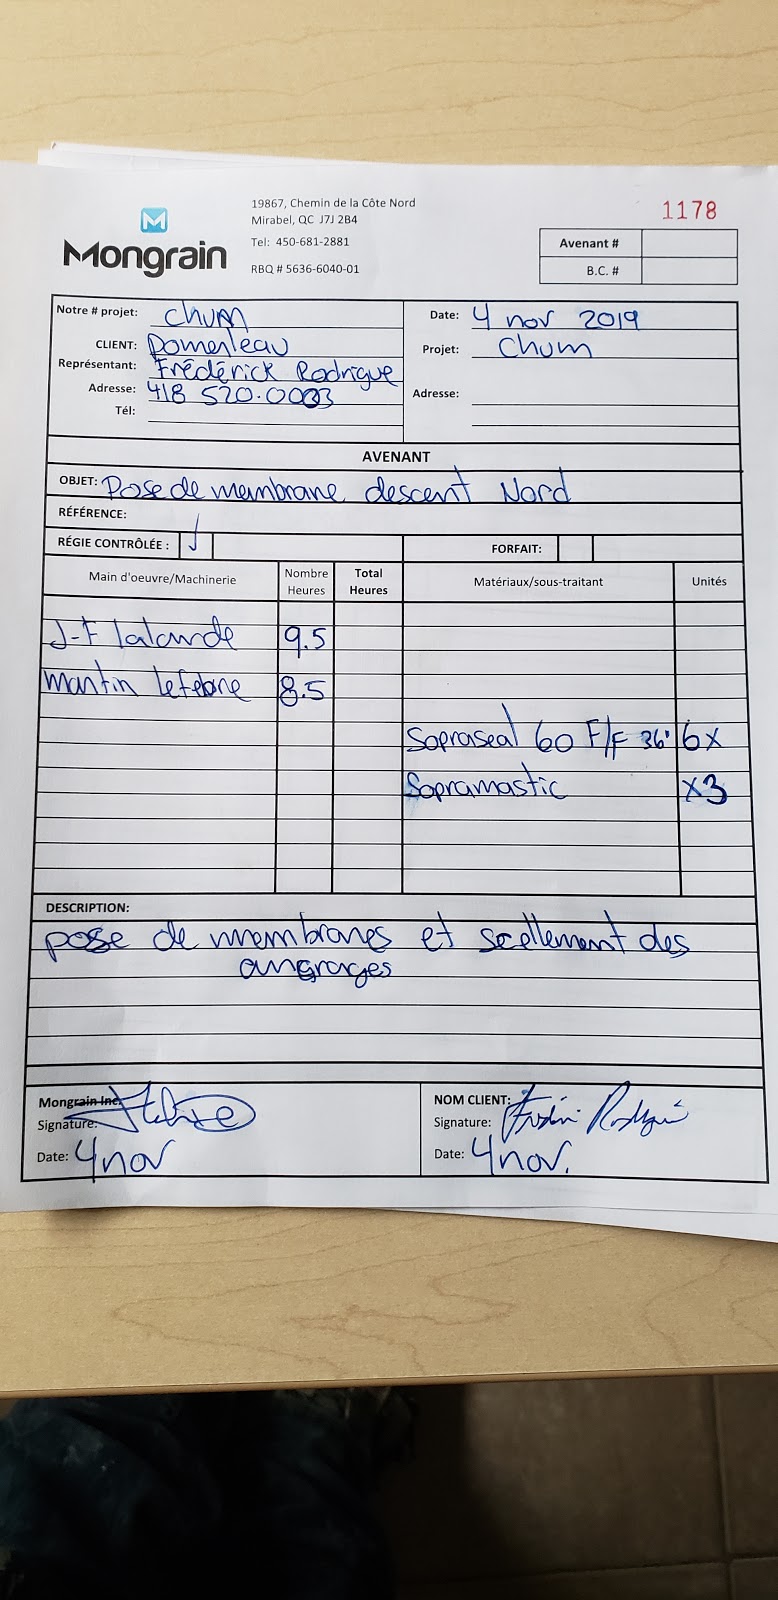 19867, Chemin de la Côte Nord
Mirabel, QC J7J 2B4
Tel: 450-681-2881
RBQ # 5636-6040-01
Mongrain
1178
Avenant #
B.C. #
Notre # projet: Chum
Date: 4 nov 2019
CLIENT: Pomerleau
Projet: Chum
Représentant: Frédérick Rodrigue
Adresse: 418 520.0003
Adresse:
Tél:
AVENANT
OBJET: Pose de membrane descent Nord
RÉFÉRENCE:
RÉGIE CONTRÔLÉE :
FORFAIT:
Main d'oeuvre/Machinerie Nombre Heures Total Heures Matériaux/sous-traitant Unités
J-F Lalande 9.5
Martin Lefebvre 8.5
Sopraseal 60 F/F 36" 6x
Sopramastic x3
DESCRIPTION:
pose de membranes et scellement des
angrages
Mongrain Inc.
Signature:
Date: 4 nov
NOM CLIENT:
Signature:
Date: 4 nov.